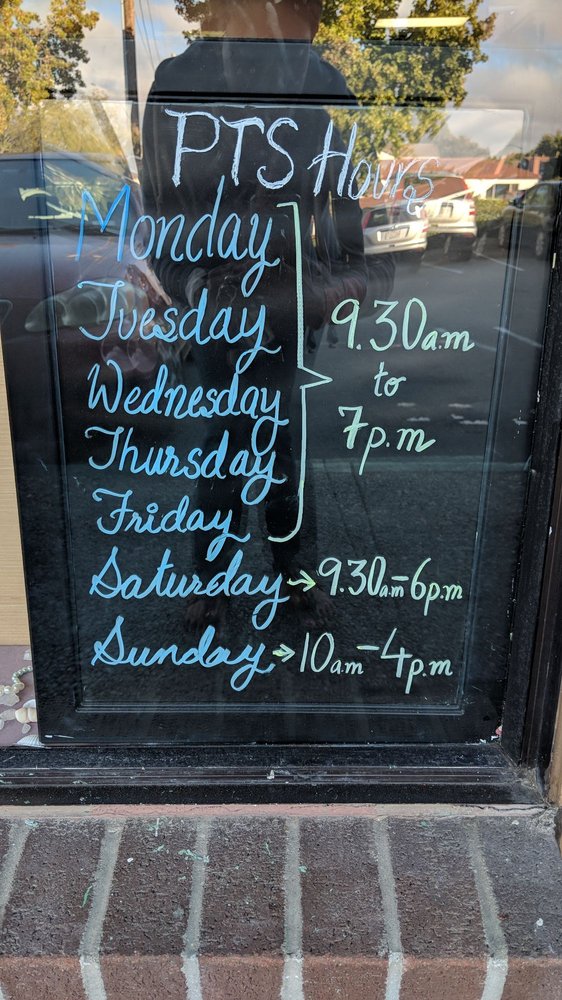 PTS Hours
Monday
Tuesday
Wednesday
Thursday
Friday
9.30am
to
7p.m
Saturday → 9.30am - 6p.m
Sunday → 10am - 4p.m